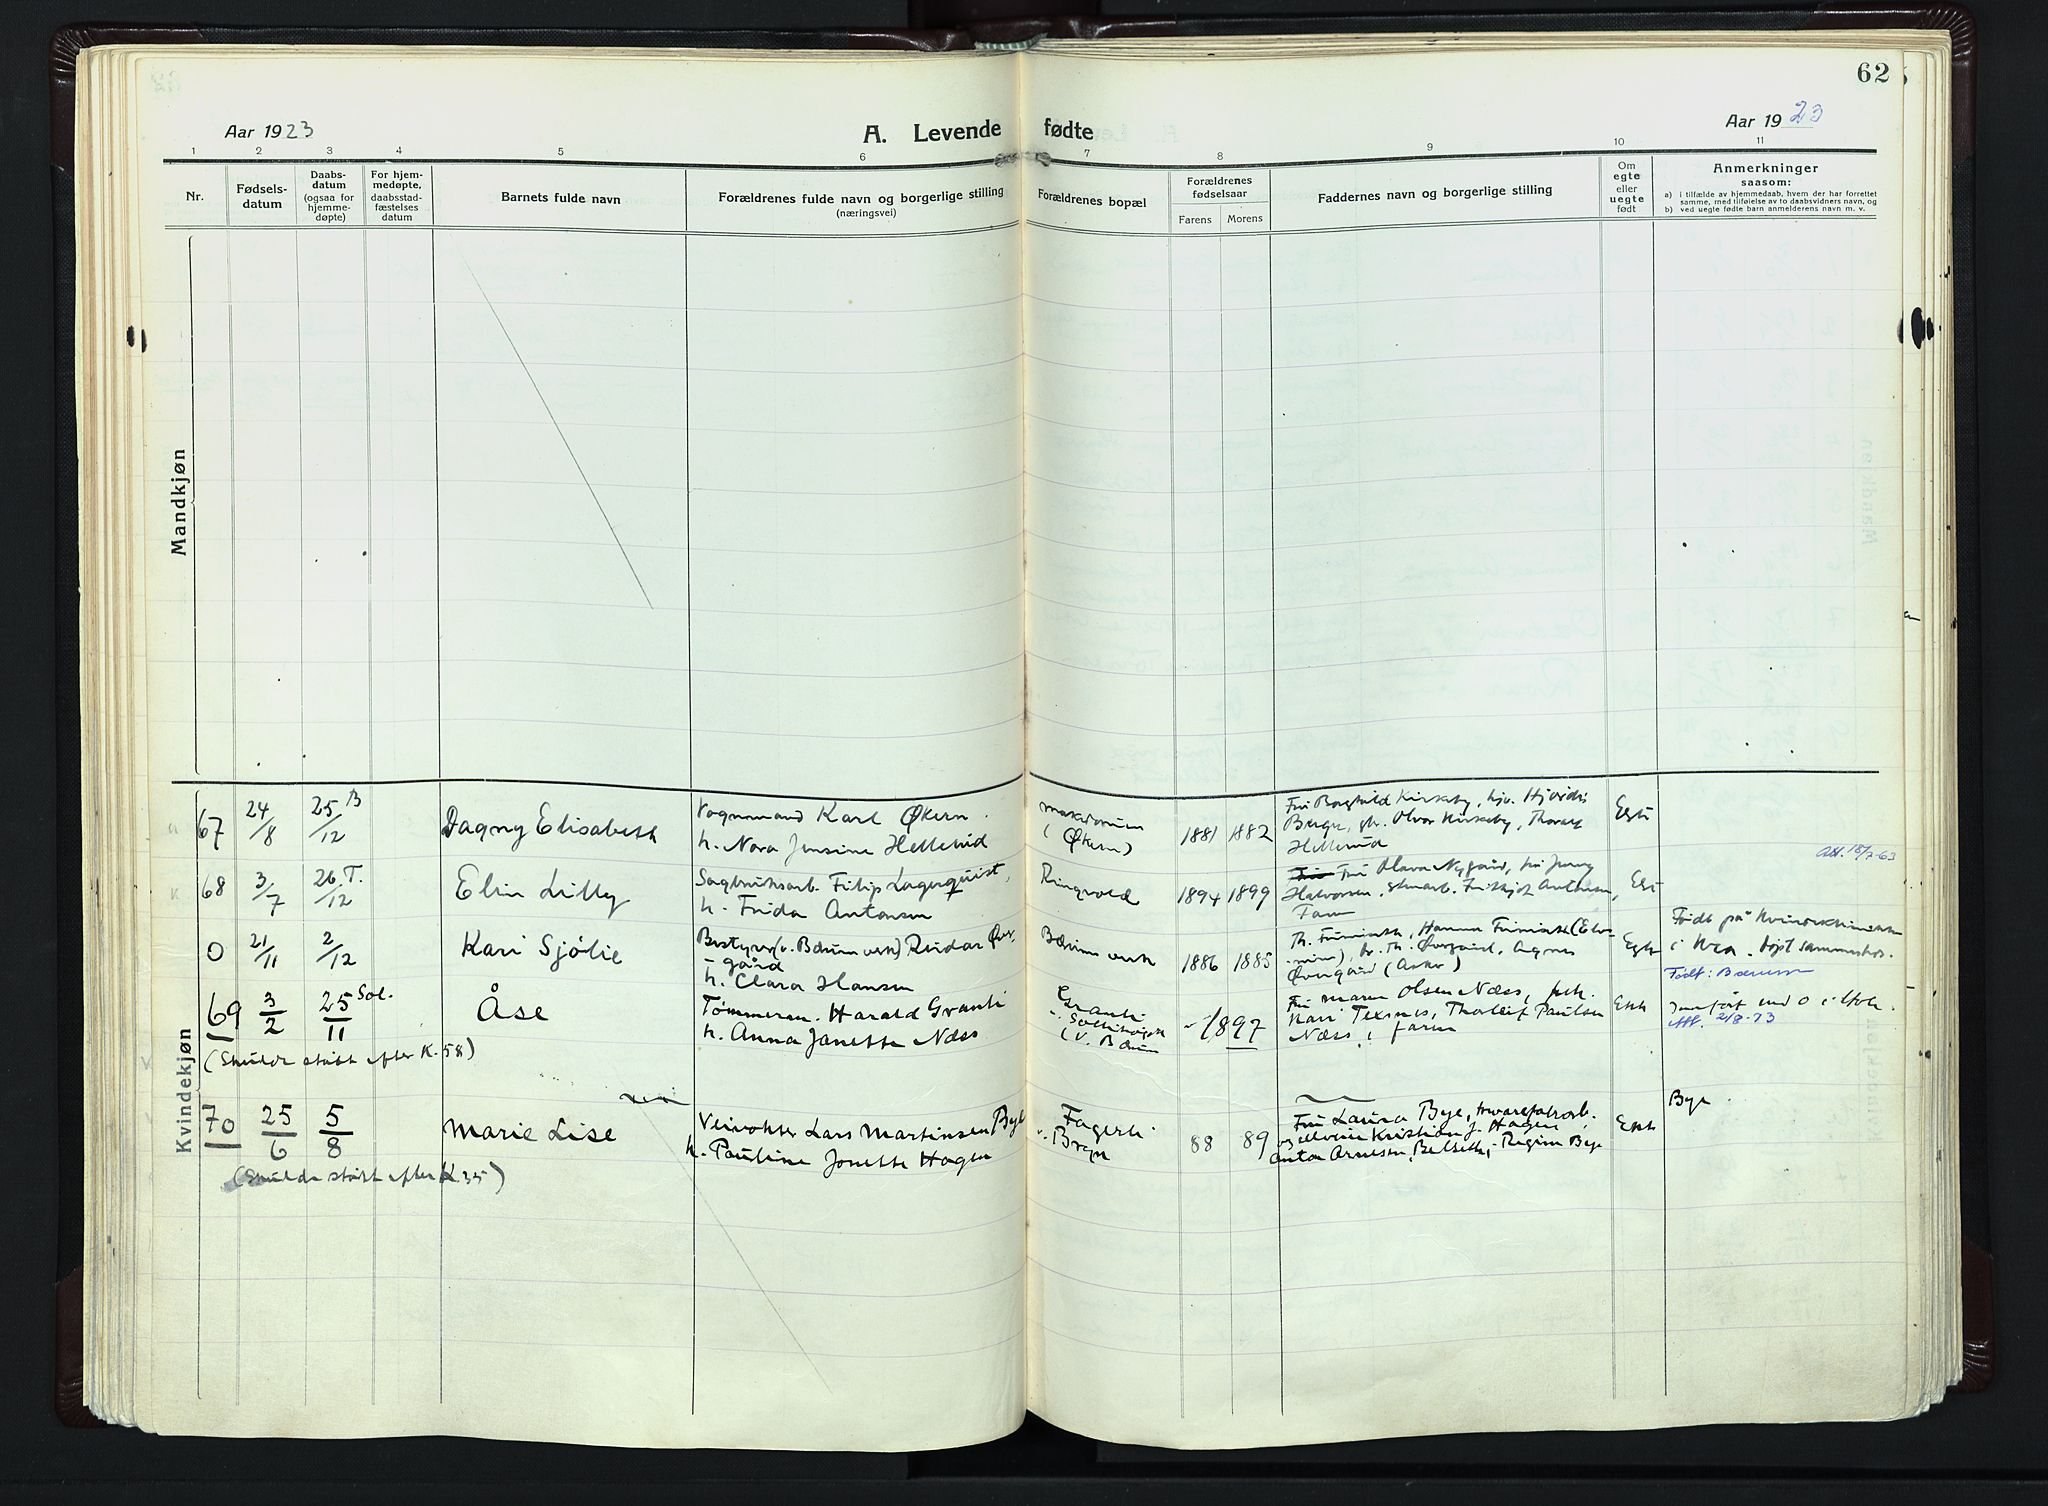 62
Aar 1923
A. Levende fødte
Aar 1923
1 2 3 4 5 6 7 8 9 10 11
Nr.
Fødsels-
datum
Daabs-
datum
(ogsaa for
hjemme-
døpte)
For hjem-
medøpte,
daabsstad-
fæstelses
datum
Barnets fulde navn
Forældrenes fulde navn og borgerlige stilling
(næringsvei)
Forældrenes bopæl
Forældrenes
fødselsaar
Farens Morens
Faddernes navn og borgerlige stilling
Om
egte
eller
uegte
født
Anmerkninger
saasom:
a) i tilfælde av hjemmedaab, hvem der har forrettet
samme, med tilføielse av to daabsvidners navn, og
b) ved uegte fødte barn anmelderens navn m. v.
Mandkjøn
Kvindekjøn
67 24/8 25/12 B
Dagny Elisabeth
Vognmand Karl Økern
h. Nora Jensine Hellerud
(Økern)
1881 1882
Fru Borghild Kirkeby, Hjørdis
Kirkeby, Thoralf
Hellerud
Egte
68 3/7 26/12 T.
Elin Lilly
Sagbruksarb. Filip Lagerquist,
h. Frida Antonsen
Ringvold
1894 1899
Fru Olava Nygård, fru Jenny
Halvorsen, Frithjof Antonsen,
Faren
18/7-63
0 21/11 2/12
Kari Sjølie
Bestyrer (v. Bærum verk) Reidar Øver-
gård
h. Clara Hansen
Bærum verk
1886 1885
Agnes
Øvergård (Asker)
Egte
Født på Kvindeklinikken
i Kra. Døpt sammesteds.
Født: Bærum
69 3/2 25/11 Sol.
Åse
Tømmerm. Harald Granli
h. Anna Janette Næss
Granli
Sollihøgda
(V. Bærum
1897
Fru Maren Olsen Næss, frk.
Kari Texnes, Thorleif Paulsen
Næss, faren
Ekte
2/8-73
(Skulde stått efter K. 58)
70 25/6 5/8
Marie Lise
Veivokter Lars Martinsen Bye
h. Pauline Jonette Hagen
Fagerli
Bryn
88 89
Fru Laura Bye,
Kristian J. Hagen,
Anton Arnesen, Regine Bye
Ekte
Bye
(Skulde stått efter K 35)